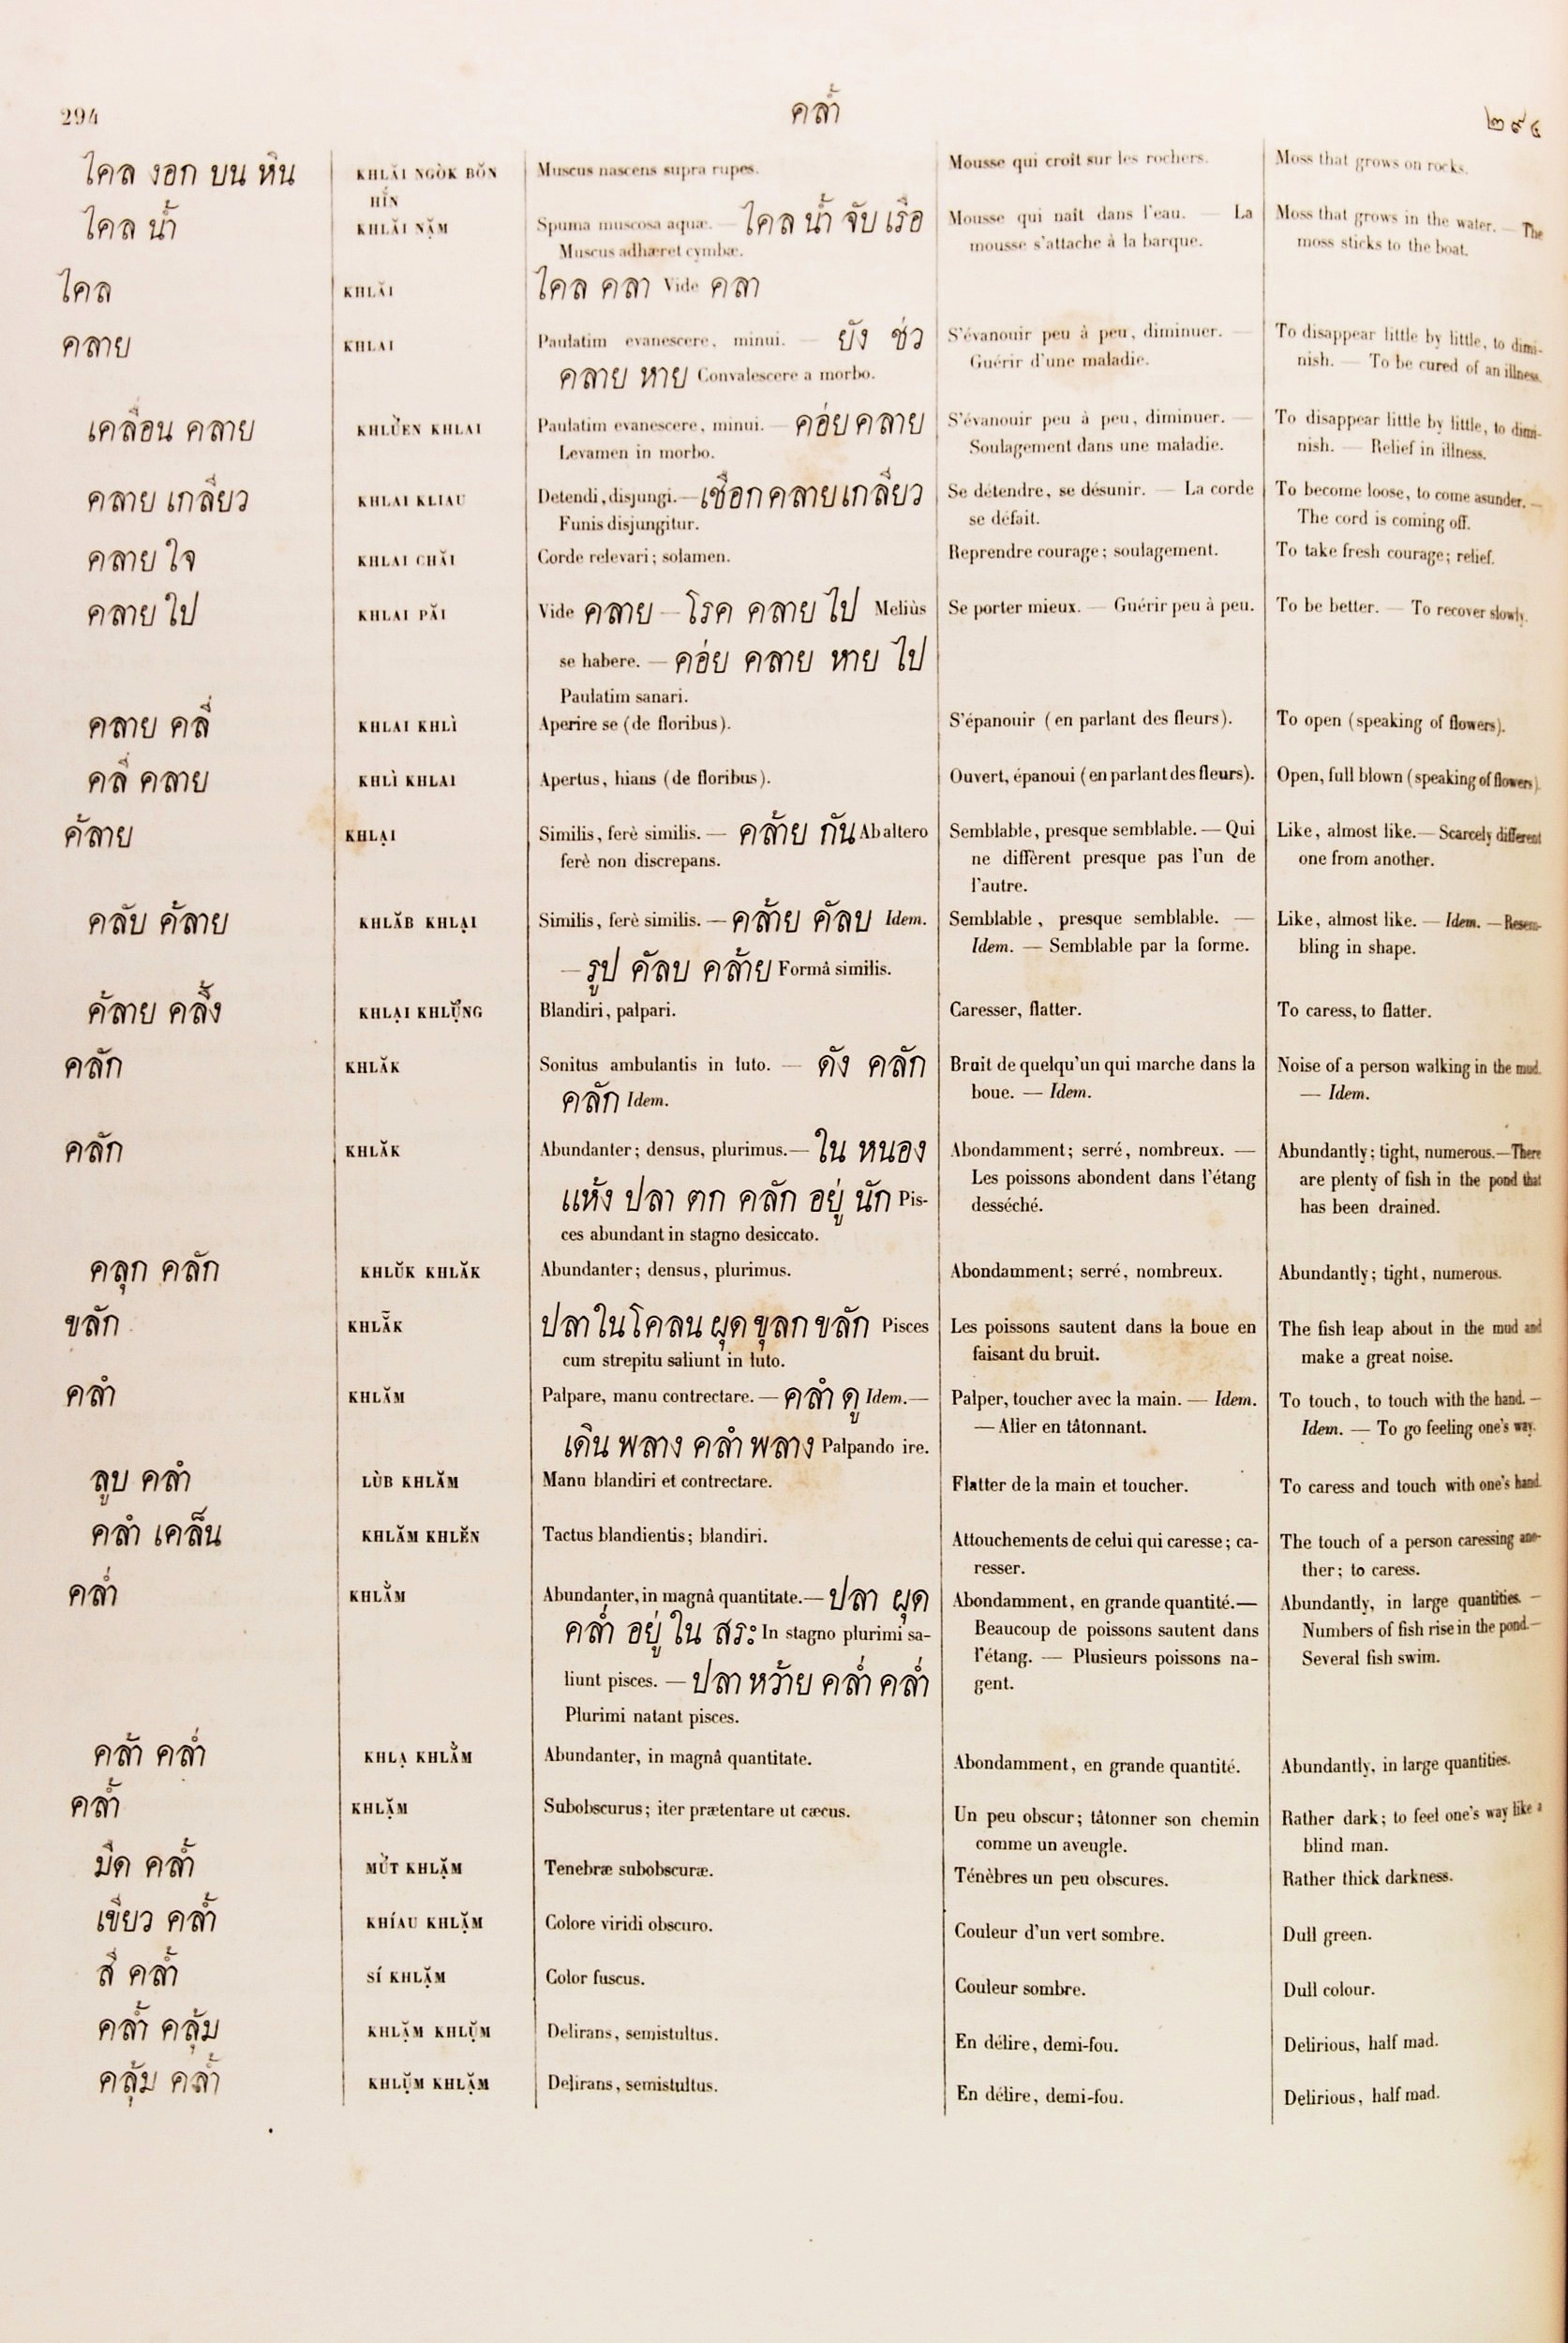 294
คล้ำ
๒๙๔
ไคล งอก บน หิน
KHLĂI NGÒK BŎN
HĬN
Muscus nascens supra rupes.
Mousse qui croît sur les rochers.
Moss that grows on rocks.
ไคล น้ำ
KHLĂI NẶM
Spuma muscosa aquæ. — ไคล น้ำ จับ เรือ
Muscus adhæret cymbæ.
Mousse qui naît dans l'eau. — La
mousse s'attache à la barque.
Moss that grows in the water. — The
moss sticks to the boat.
ไคล
KHLĂI
ไคล คลา Vide คลา
คลาย
KHLAI
Paulatim evanescere, minui. — ยัง ช่ว
คลาย หาย Convalescere a morbo.
S'évanouir peu à peu, diminuer. —
Guérir d'une maladie.
To disappear little by little, to dimi-
nish. — To be cured of an illness.
เคลื่อน คลาย
KHLỪEN KHLAI
Paulatim evanescere, minui. — ค่อย คลาย
Levamen in morbo.
S'évanouir peu à peu, diminuer. —
Soulagement dans une maladie.
To disappear little by little, to dimi-
nish. — Relief in illness.
คลาย เกลียว
KHLAI KLIAU
Detendi, disjungi. — เชือก คลาย เกลียว
Funis disjungitur.
Se détendre, se désunir. — La corde
se défait.
To become loose, to come asunder. —
The cord is coming off.
คลาย ใจ
KHLAI CHĂI
Corde relevari; solamen.
Reprendre courage; soulagement.
To take fresh courage; relief.
คลาย ไป
KHLAI PĂI
Vide คลาย — โรค คลาย ไป Meliùs
se habere. — ค่อย คลาย หาย ไป
Paulatim sanari.
Se porter mieux. — Guérir peu à peu.
To be better. — To recover slowly.
คลาย คลี่
KHLAI KHLÌ
Aperire se (de floribus).
S'épanouir (en parlant des fleurs).
To open (speaking of flowers).
คลี่ คลาย
KHLÌ KHLAI
Apertus, hians (de floribus).
Ouvert, épanoui (en parlant des fleurs).
Open, full blown (speaking of flowers).
ค้ลาย
KHLẠI
Similis, ferè similis. — คล้าย กัน Ab altero
ferè non discrepans.
Semblable, presque semblable. — Qui
ne diffèrent presque pas l'un de
l'autre.
Like, almost like. — Scarcely different
one from another.
คลับ ค้ลาย
KHLĂB KHLẠI
Similis, ferè similis. — คล้าย คัลบ Idem.
— รูป คัลบ คล้าย Formâ similis.
Semblable, presque semblable. —
Idem. — Semblable par la forme.
Like, almost like. — Idem. — Resem-
bling in shape.
ค้ลาย คลึ้ง
KHLẠI KHLỰNG
Blandiri, palpari.
Caresser, flatter.
To caress, to flatter.
คลัก
KHLĂK
Sonitus ambulantis in luto. — ดัง คลัก
คลัก Idem.
Bruit de quelqu'un qui marche dans la
boue. — Idem.
Noise of a person walking in the mud.
— Idem.
คลัก
KHLĂK
Abundanter; densus, plurimus. — ใน หนอง
แห้ง ปลา ตก คลัก อยู่ นัก Pis-
ces abundant in stagno desiccato.
Abondamment; serré, nombreux. —
Les poissons abondent dans l'étang
desséché.
Abundantly; tight, numerous. — There
are plenty of fish in the pond that
has been drained.
คลุก คลัก
KHLŬK KHLĂK
Abundanter; densus, plurimus.
Abondamment; serré, nombreux.
Abundantly; tight, numerous.
ขลัก
KHLẮK
ปลา ใน โคลน ผุด ขุลก ขลัก Pisces
cum strepitu saliunt in luto.
Les poissons sautent dans la boue en
faisant du bruit.
The fish leap about in the mud and
make a great noise.
คลำ
KHLĂM
Palpare, manu contrectare. — คลำ ดู Idem. —
เดิน พลาง คลำ พลาง Palpando ire.
Palper, toucher avec la main. — Idem.
— Aller en tâtonnant.
To touch, to touch with the hand. —
Idem. — To go feeling one's way.
ลูบ คลำ
LÙB KHLĂM
Manu blandiri et contrectare.
Flatter de la main et toucher.
To caress and touch with one's hand.
คลำ เคล็น
KHLĂM KHLĔN
Tactus blandientis; blandiri.
Attouchements de celui qui caresse; ca-
resser.
The touch of a person caressing ano-
ther; to caress.
คล่ำ
KHLẰM
Abundanter, in magnâ quantitate. — ปลา ผุด
คล่ำ อยู่ ใน สระ In stagno plurimi sa-
liunt pisces. — ปลา หว้าย คล่ำ คล่ำ
Plurimi natant pisces.
Abondamment, en grande quantité. —
Beaucoup de poissons sautent dans
l'étang. — Plusieurs poissons na-
gent.
Abundantly, in large quantities. —
Numbers of fish rise in the pond. —
Several fish swim.
คล้า คล่ำ
KHLẠ KHLẰM
Abundanter, in magnâ quantitate.
Abondamment, en grande quantité.
Abundantly, in large quantities.
คล้ำ
KHLẶM
Subobscurus; iter prætentare ut cæcus.
Un peu obscur; tâtonner son chemin
comme un aveugle.
Rather dark; to feel one's way like a
blind man.
มืด คล้ำ
MỪT KHLẶM
Tenebræ subobscuræ.
Ténèbres un peu obscures.
Rather thick darkness.
เขียว คล้ำ
KHÍAU KHLẶM
Colore viridi obscuro.
Couleur d'un vert sombre.
Dull green.
สี คล้ำ
SÍ KHLẶM
Color fuscus.
Couleur sombre.
Dull colour.
คล้ำ คลุ้ม
KHLẶM KHLỤ̆M
Delirans, semistultus.
En délire, demi-fou.
Delirious, half mad.
คลุ้ม คล้ำ
KHLỤ̆M KHLẶM
Delirans, semistultus.
En délire, demi-fou.
Delirious, half mad.